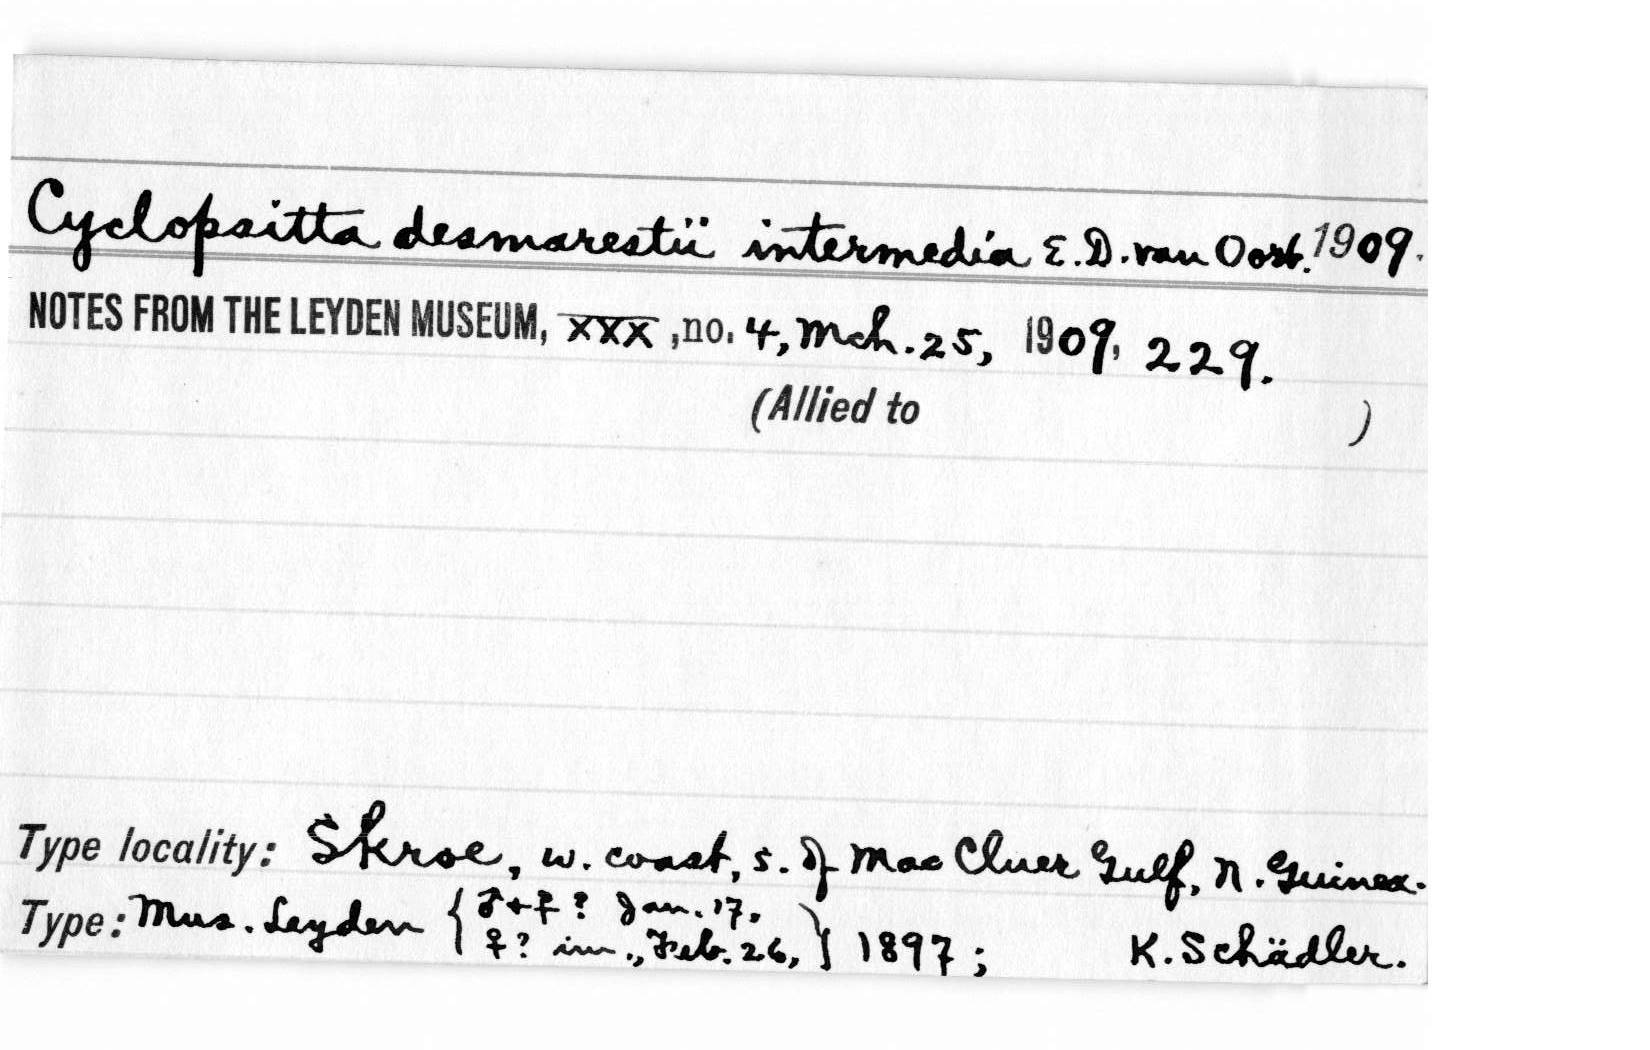 Cyclopsitta desmarestii intermedia E.D. van Oort. 1909.
NOTES FROM THE LEYDEN MUSEUM, XXX, no. 4, Mch. 25, 1909, 229.
(Allied to )
Type locality: Skroe, w. coast, s. of Mac Cluer Gulf, N. Guinea.
Type: Mus. Leyden { ♂ + ♀ ? Jan. 17,
♀ ? im., Feb. 26, } 1897 ; K. Schädler.